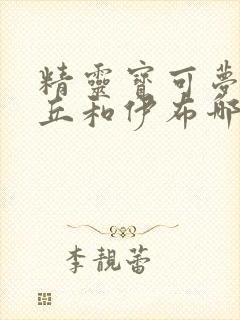 精靈寶可夢
丘和伊布那
李靚蕾